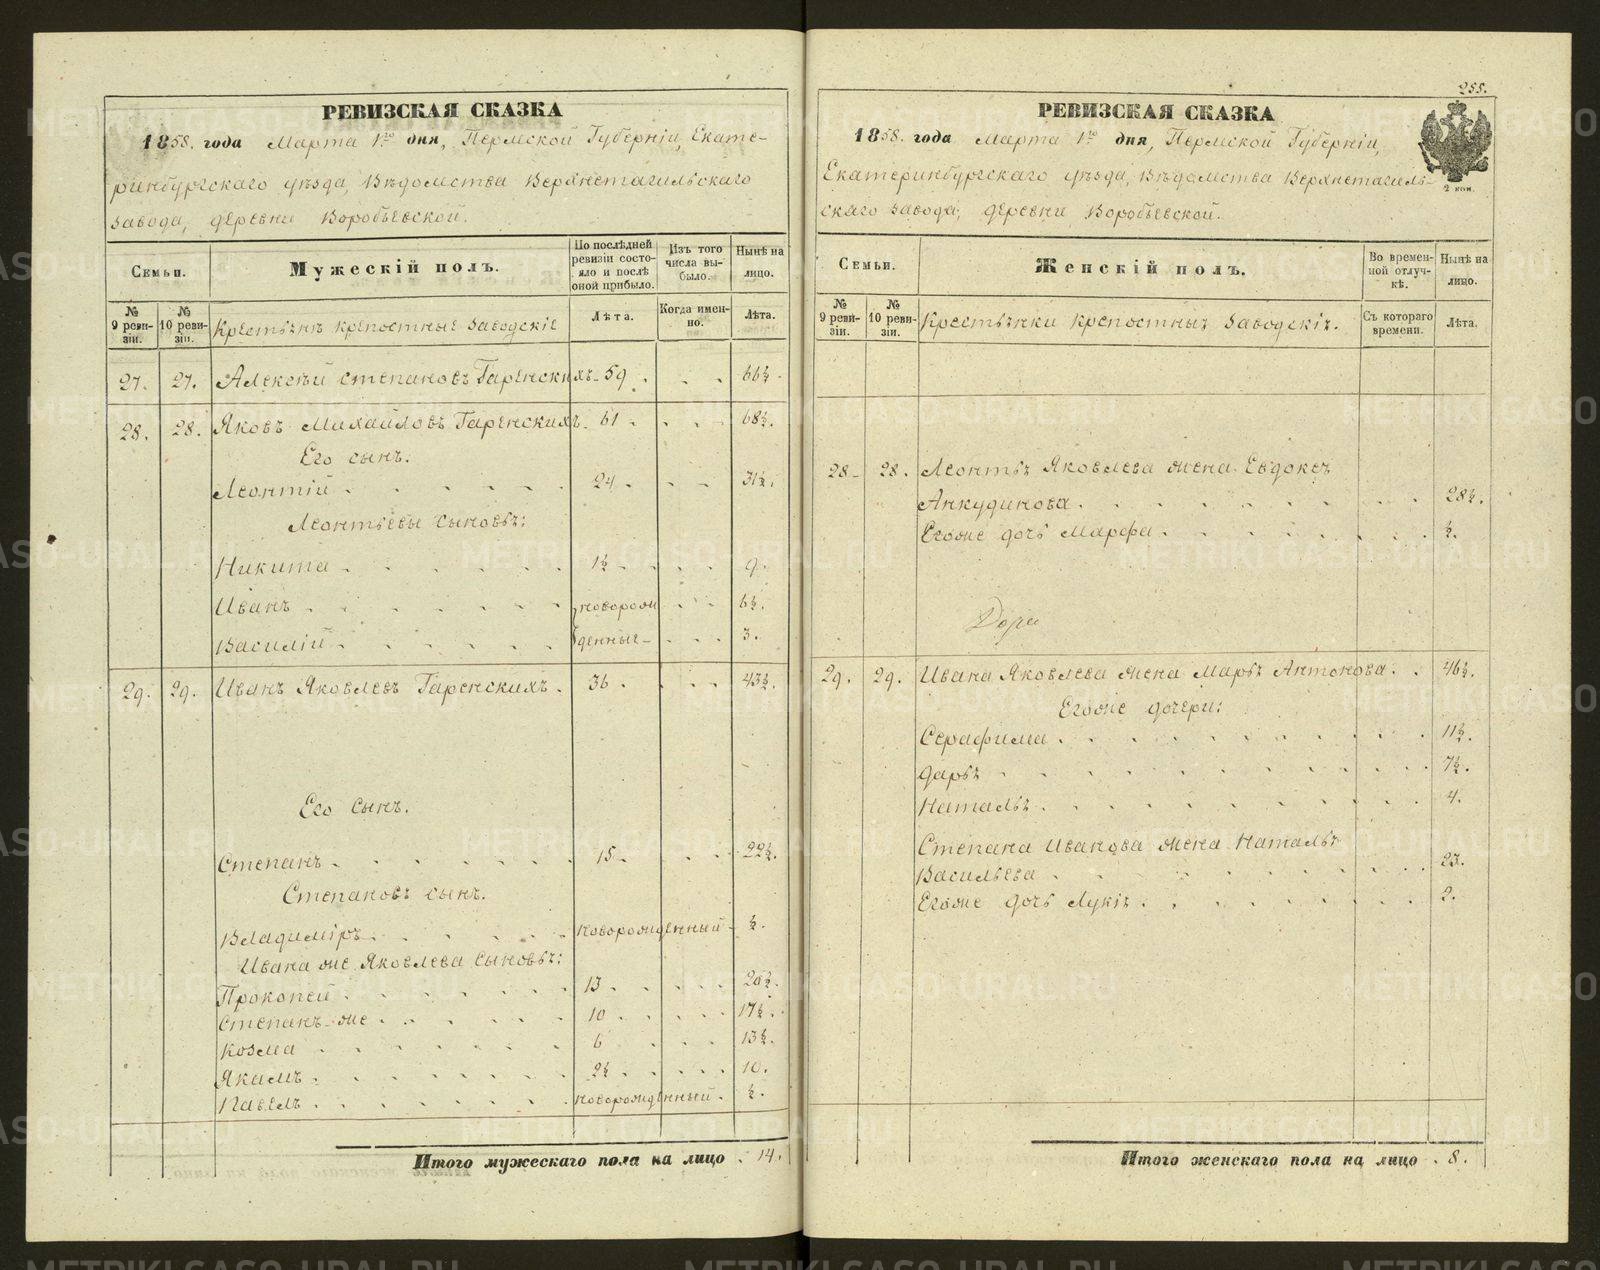 РЕВИЗСКАЯ СКАЗКА
1858. года Марта 1го дня, Пермской Губерніи, Екате-
ринбургскаго уѣзда, Вѣдомства Верхнетагильскаго
завода, деревни Воробьевской.
Семьи.
Мужескій полъ.
По послѣдней ревизіи состояло и послѣ оной прибыло.
Изъ того числа выбыло.
Нынѣ на лицо.
№ 9 ревизіи.
№ 10 ревизіи.
Крестьяне крепостные заводскіе
Лѣта.
Когда именно.
Лѣта.
27. 27. Алексѣй Степановъ Гаренскихъ 59 66½
28. 28. Яковъ Михайловъ Гаренскихъ 61 68½.
Его сынъ.
Леонтій 24 31½.
Леонтьевы сыновья:
Никита 1½ 9.
Иванъ новорож 6½.
Василій денные 3.
29. 29. Иванъ Яковлевъ Гаренскихъ. 36 43½.
Его сынъ.
Степанъ 15 22½.
Степановъ сынъ.
Владиміръ новорожденный ½.
Ивана же Яковлева сыновья:
Прокопей 13 20½.
Степанъ же 10 17½.
Козма 6 13½.
Якимъ 2½ 10.
Павелъ новорожденный ½.
Итого мужескаго пола на лицо 14.
255.
РЕВИЗСКАЯ СКАЗКА
1858. года Марта 1го дня, Пермской Губерніи,
Екатеринбургскаго уѣзда, Вѣдомства Верхнетагиль-
скаго завода, деревни Воробьевской.
2 коп.
Семьи.
Женскій полъ.
Во временной отлучкѣ.
Нынѣ на лицо.
№ 9 ревизіи.
№ 10 ревизіи.
Крестьянки крепостныя заводскія.
Съ котораго времени.
Лѣта.
28 28. Леонтья Яковлева жена Евдокея
Анкудинова 28½.
Егоже дочь Марфа ½.
29. 29. Ивана Яковлева жена Марья Антонова 46½.
Егоже дочери:
Серафима 11½.
Дарья 7½.
Наталья 4.
Степана Иванова жена Наталья
Васильева 23.
Егоже дочь Лукія 2.
Итого женскаго пола на лицо 8.
METRIKI.GASO-URAL.RU